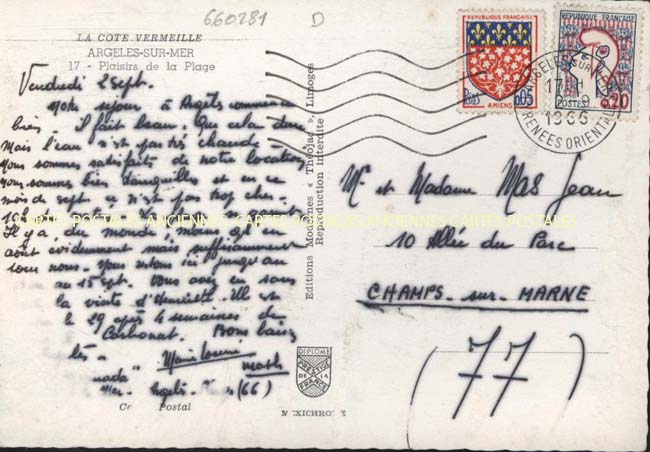 660281 D
LA COTE VERMEILLE
ARGELES-SUR-MER
17 - Plaisirs de la Plage
Vendredi 2 Sept.
Notre séjour à Argelès commence
bien. Il fait beau. Que cela dure
Mais l'eau n'est pas très chaude -
Nous sommes satisfaits de notre location
nous sommes bien tranquilles et en ce
mois de sept. ce n'est pas trop cher
Il y a du monde, moins qu'en
août évidemment mais suffisamment
pour nous. Nous restons ici jusqu'au
au 15 sept. Vous avez eu sans
la visite d'Henriette. Elle est
le 29 après 4 semaines de
Carbonat. Bons bais
sers -
(66)
Ca Postal
CARTES POSTALES ANCIENNES CARTES POSTALES ANCIENNES CARTES POSTALES
Editions Modernes « Théojac », Limoges
Reproduction interdite
DIPLOME
PRESTIGE
DE LA
FRANCE
MEXICHROME
REPUBLIQUE FRANCAISE
POSTES
0,05
AMIENS
REPUBLIQUE FRANÇAISE
POSTES
0,20
ARGELES-SUR-MER
17 H
1966
PYRENEES ORIENTALES
Mr et Madame MAS Jean
10 Allée du Parc
CHAMPS-sur-MARNE
(77)